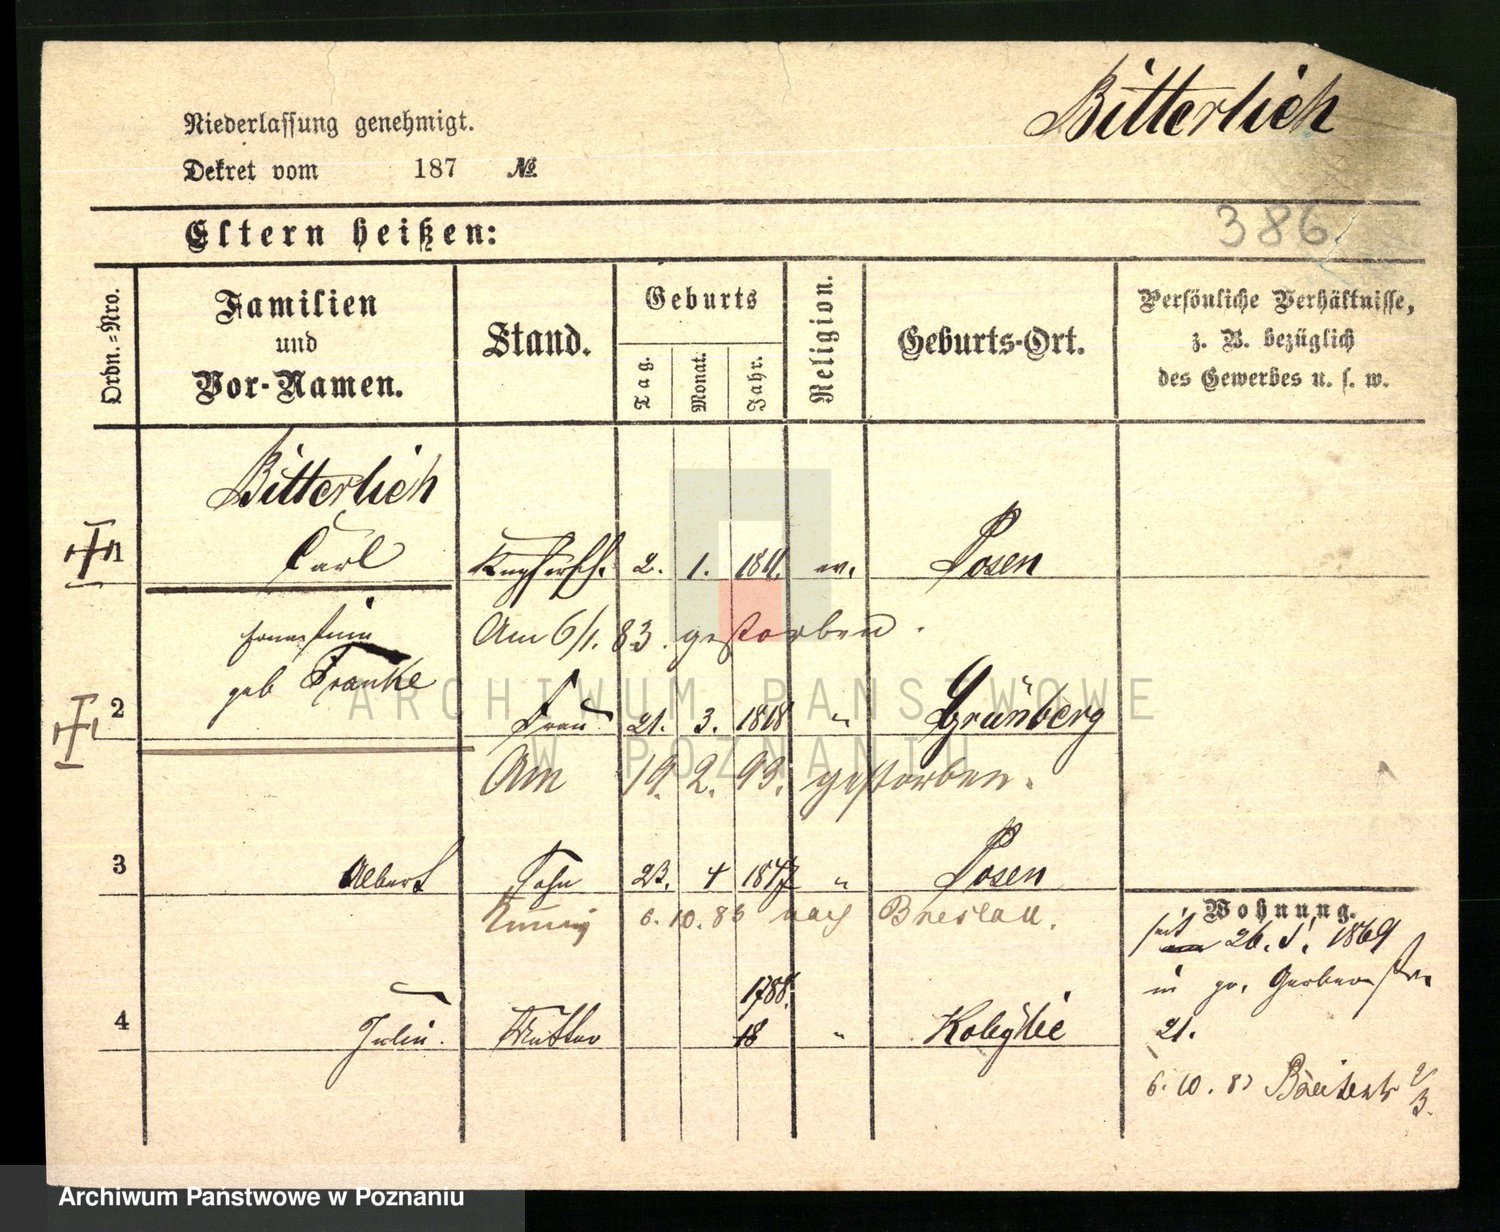 Bitterlich
Niederlassung genehmigt.
Dekret vom 187 №
386
Eltern heißen:
Ordn.-Nro.
Familien
und
Vor-Namen.
Stand.
Geburts
Tag.
Monat.
Jahr.
Religion.
Geburts-Ort.
Persönliche Verhältnisse,
z. B. bezüglich
des Gewerbes u. s. w.
Bitterlich
1 Carl 2. 1. 1811. ev. Posen
Am 6/1. 83. gestorben.
geb Franke
2 Frau 21. 3. 1818 " Grünberg
Am 19. 2. 93. gestorben.
3 Albert Sohn 23. 4 1847 " Posen
6. 10. 83 nach Breslau.
Wohnung.
seit 26. 1869
in gr. Gerberstr.
21.
1788.
4 Julie. Mutter 18 "
6. 10. 83
ARCHIWUM PAŃSTWOWE
W POZNANIU
Archiwum Państwowe w Poznaniu